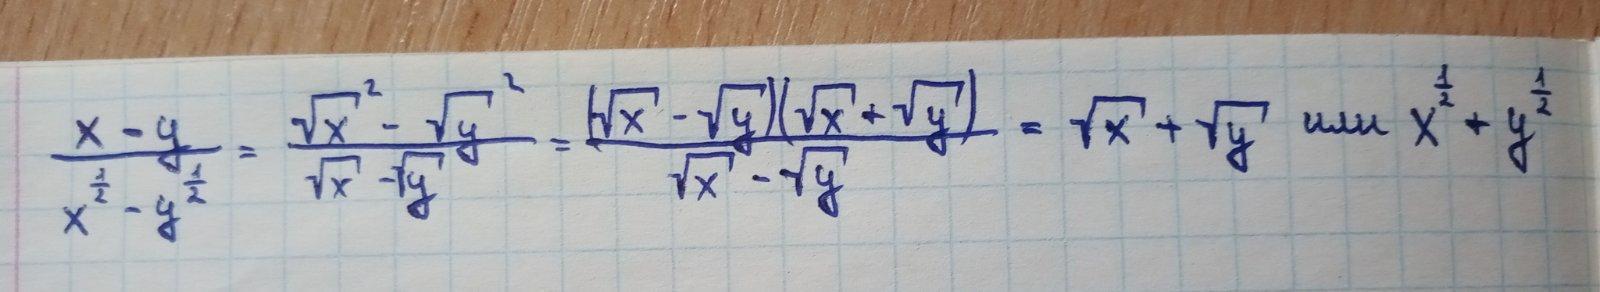 \frac{x-y}{x^{\frac{1}{2}}-y^{\frac{1}{2}}} = \frac{\sqrt{x}^2-\sqrt{y}^2}{\sqrt{x}-\sqrt{y}} = \frac{(\sqrt{x}-\sqrt{y})(\sqrt{x}+\sqrt{y})}{\sqrt{x}-\sqrt{y}} = \sqrt{x}+\sqrt{y} или x^{\frac{1}{2}}+y^{\frac{1}{2}}